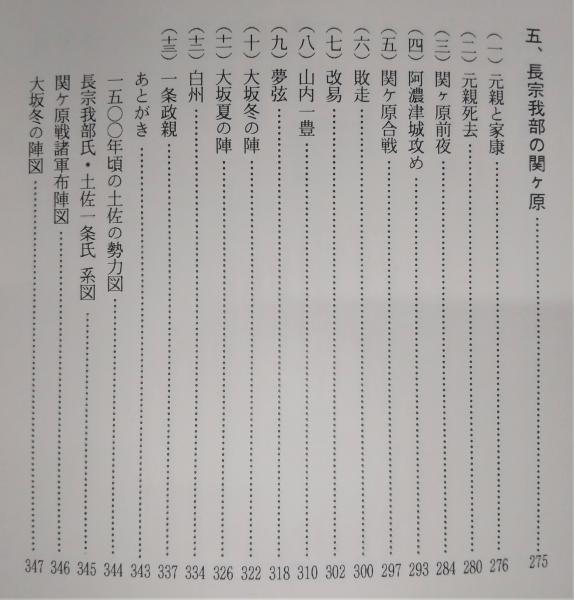 五、長宗我部の関ヶ原……275
(一) 元親と家康……276
(二) 元親死去……280
(三) 関ヶ原前夜……284
(四) 阿濃津城攻め……293
(五) 関ヶ原合戦……297
(六) 敗走……300
(七) 改易……302
(八) 山内一豊……310
(九) 夢弦……318
(十) 大坂冬の陣……322
(十一) 大坂夏の陣……326
(十二) 白州……334
(十三) 一条政親……337
あとがき……343
一五〇〇年頃の土佐の勢力図……344
長宗我部氏・土佐一条氏 系図……345
関ヶ原戦諸軍布陣図……346
大坂冬の陣図……347